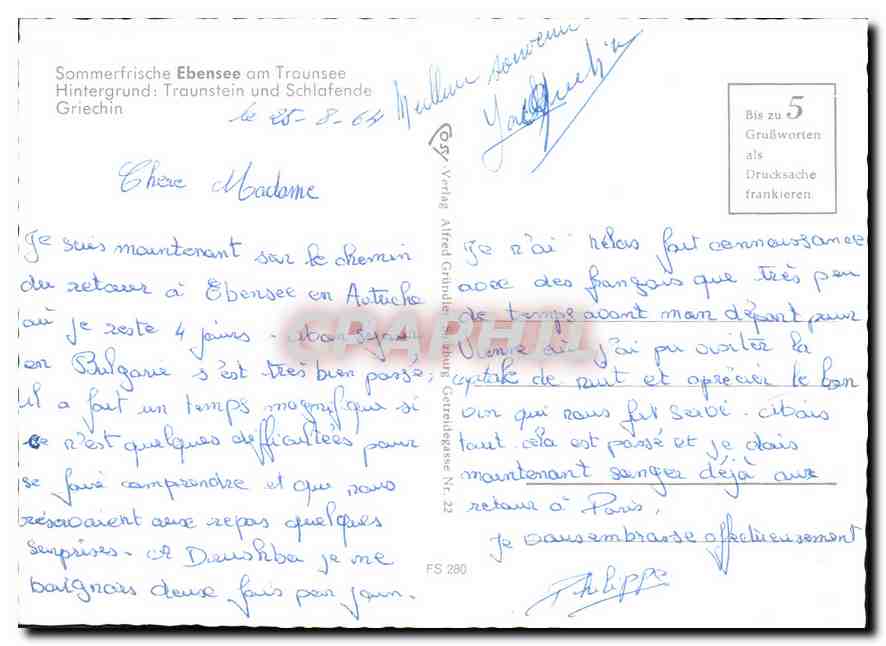 Sommerfrische Ebensee am Traunsee
Hintergrund: Traunstein und Schlafende
Griechin
le 25-8-64
Meilleur souvenir
Chere Madame
Je suis maintenant sur le chemin
du retour à Ebensee en Autriche
où je reste 4 jours. Mon séjour
en Bulgarie s'est très bien passé;
il a fait un temps magnifique si
ce n'est quelques difficultées pour
se faire comprendre et que nous
réservaient aux repas quelques
surprises. A Drushba je me
baignais deux fois par jour.
Verlag Alfred Gründler, Salzburg Getreidegasse Nr. 22
FS 280
Bis zu 5
Grußworten
als
Drucksache
frankieren.
Je n'ai hélas fait connaissance
avec des français que très peu
de temps avant mon départ pour
Vienne où j'ai pu visiter la
capitale de nuit et aprécier le bon
vin qui nous fut servi. Mais
tout cela est passé et je dois
maintenant songer déjà au
retour à Paris.
Je vous embrasse affectueusement
Philippe
CPARHIL